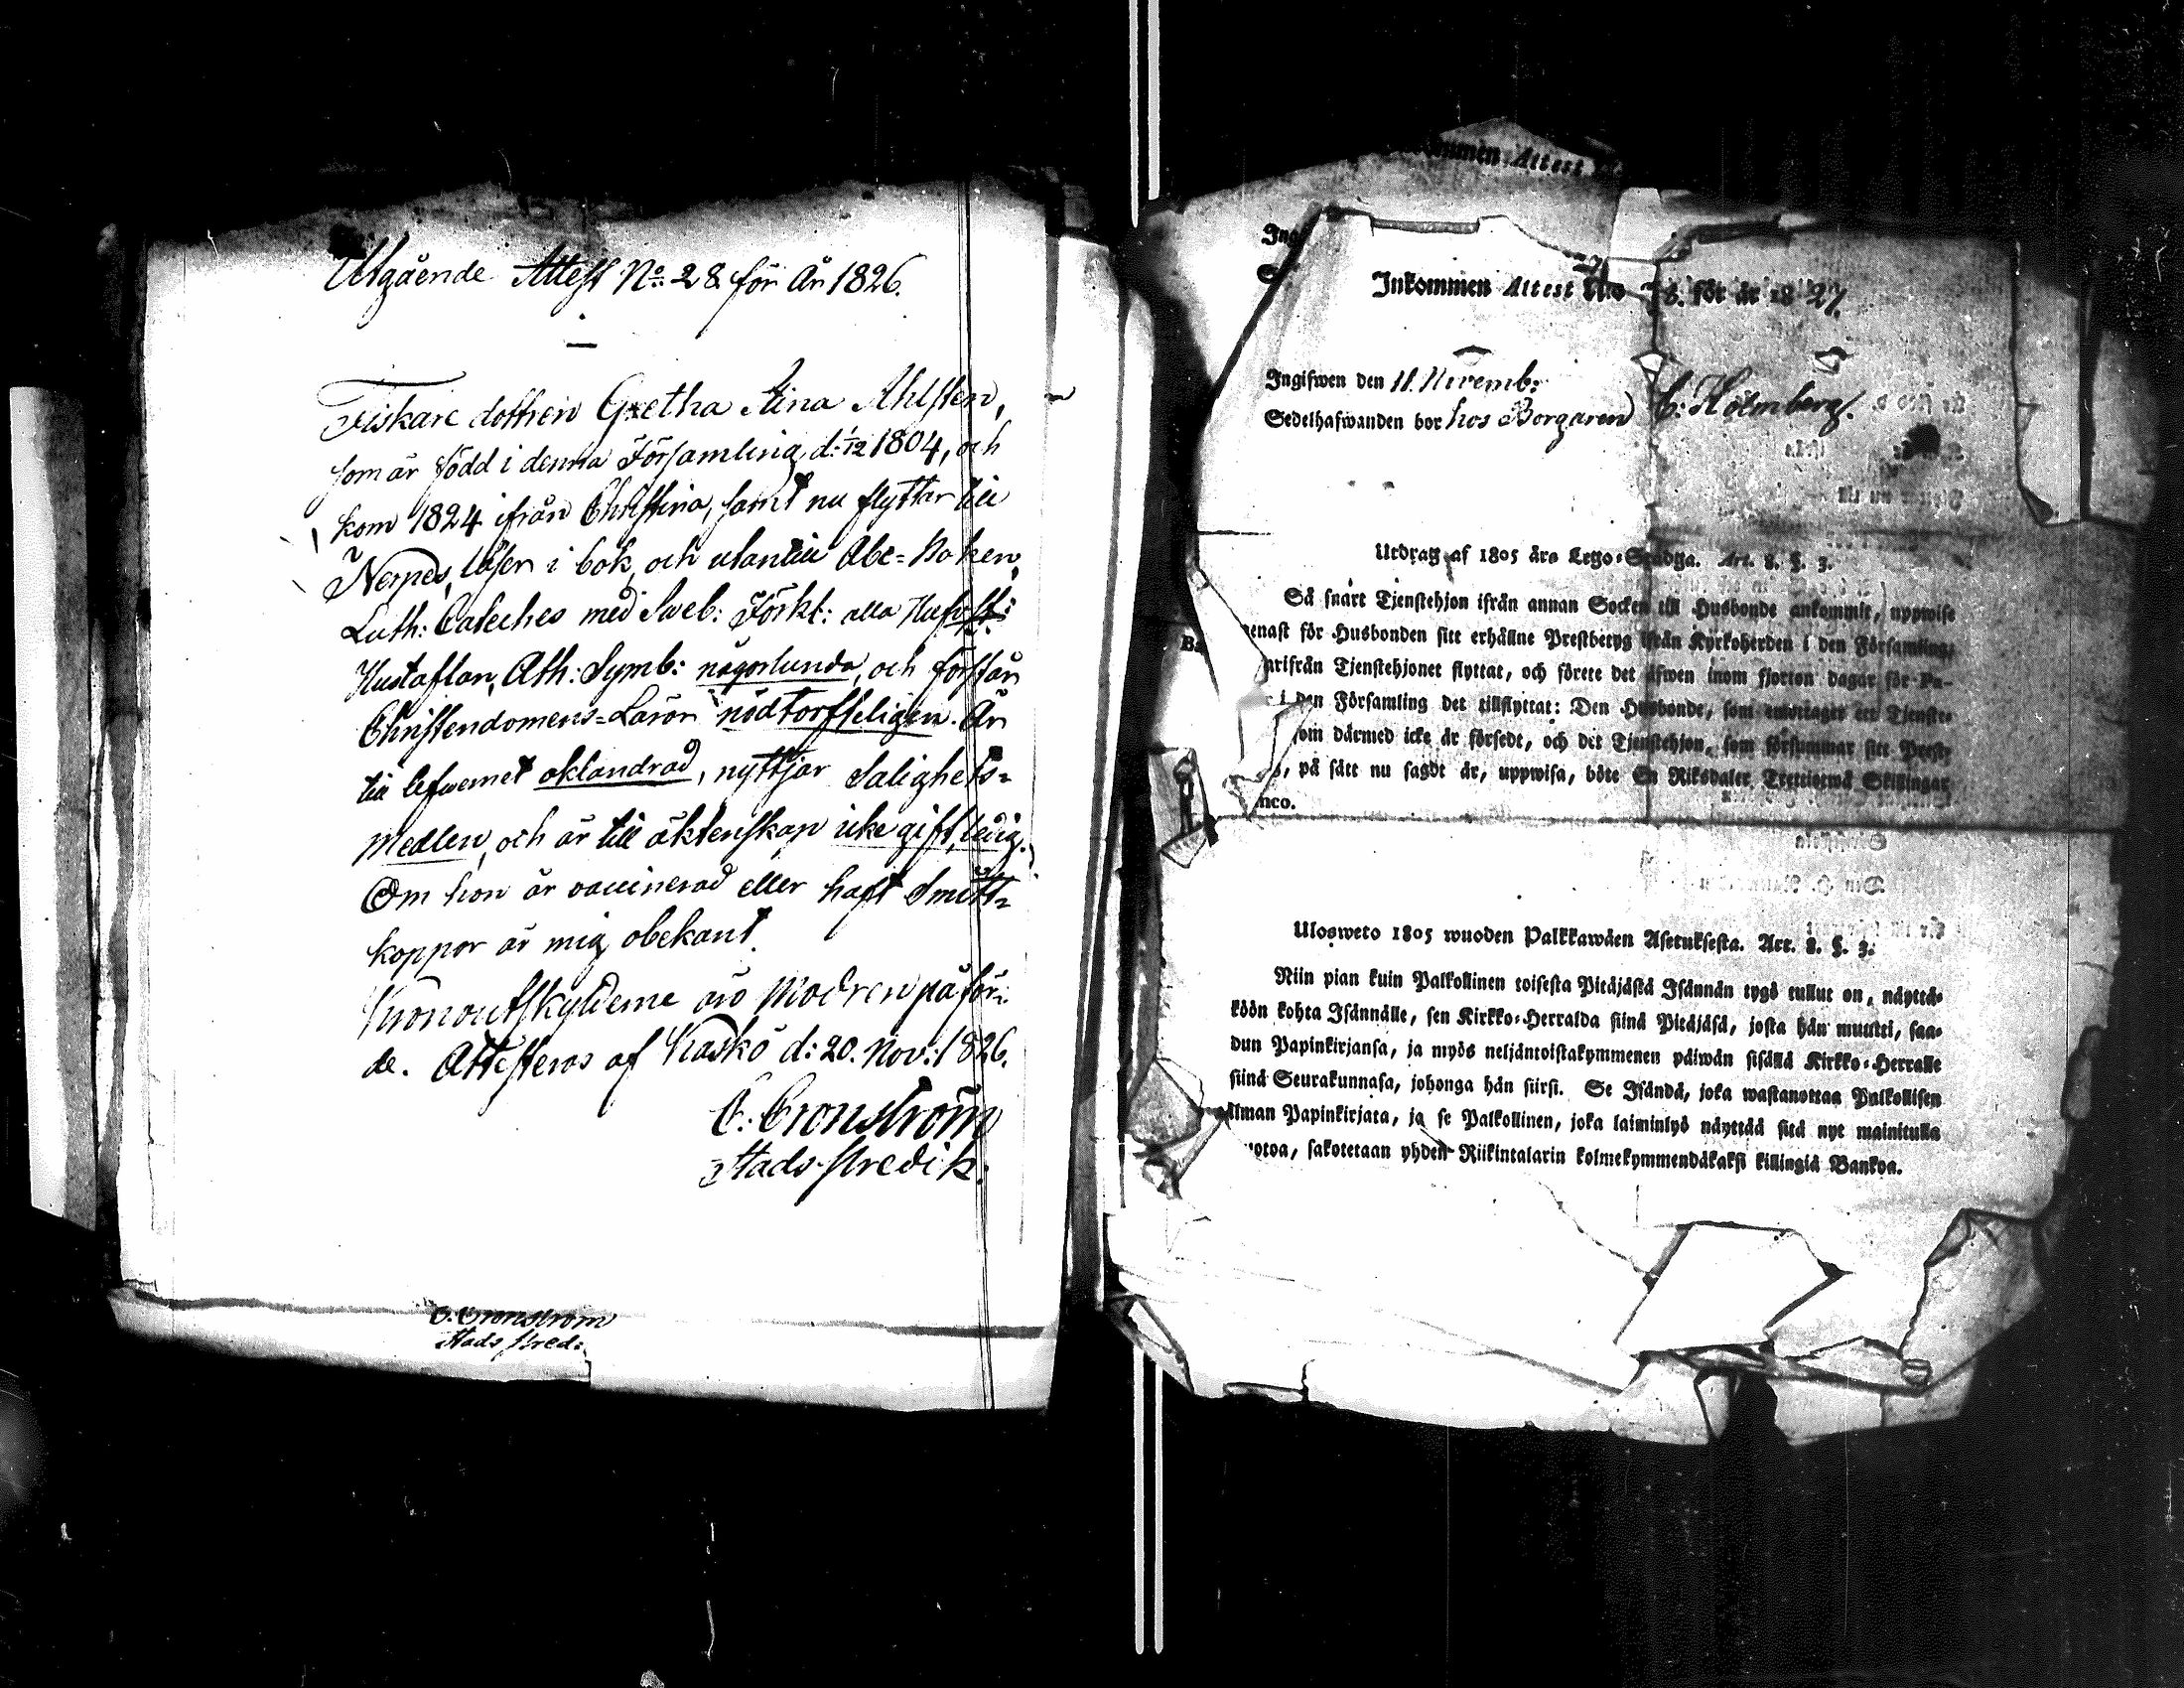 Utgående Attest No. 28. för År 1826.
Fiskare dottren Gretha Stina Ahlsten,
som är född i denna Församling d: 1/12 1804, och
kom 1824 ifrån Christina, samt nu flyttar till
Nerpes, läser i bok, och utantill Abc=boken,
Luth: Cateches med Sweb: Förkl: alla
Hustaflan, Ath: Symb: någorlunda, och förstår
Christendomens=Läror nödtorfteligen. Är
till lefwernet oklandrad, nyttjar Salighets=
medlen, och är till äktenskap icke gift, ledig.
Om hon är vaccinerad eller haft Smitt=
koppor är mig obekant.
Kronoutskylderne äro Modren påför=
de. Attesteras af Kaskö d: 20. Nov: 1826.
O. Cronström
Stads-Predik:
O. Cronström
Stads Pred:
Attest
Ing
S
Inkommen Attest N:o 76. för år 1827.
Ingifwen den 11. Novemb:
Sedelhafwanden bor hos Borgaren C: Holmberg.
Utdrag af 1805 års Lego-Stadga. Art. 8. §. 3.
Så snart Tjenstehjon ifrån annan Socken till Husbonde ankommit, uppwise
genast för Husbonden sitt erhållne Prestbetyg ifrån Kyrkoherden i den Församling,
arifrån Tjenstehjonet flyttat, och förete det äfwen inom fjorton dagar för Pa-
i den Församling det tillflyttat: Den Husbonde, som emottager ett Tjenste-
som därmed icke är försedt, och det Tjenstehjon, som försummar sitt Prest-
, på sätt nu sagdt är, uppwisa, böte En Riksdaler Trettiotwå Skillingar
nco.
Ulosweto 1805 wuoden Palkkawäen Asetuksesta. Art. 8. §. 3.
Niin pian kuin Palkollinen toisesta Pitäjästä Isännän tygö tullut on, näyttä-
köön kohta Isännälle, sen Kirkko-Herralda siinä Pitäjäsä, josta hän muutti, saa-
dun Papinkirjansa, ja myös neljäntoistakymmenen päiwän sisällä Kirkko-Herralle
siinä Seurakunnasa, johonga hän siirsi. Se Isändä, joka wastanottaa Palkollisen
ilman Papinkirjata, ja se Palkollinen, joka laiminlyö näyttää sitä nyt mainitulla
uotoa, sakotetaan yhden Riikintalarin kolmekymmendäkaksi killingiä Bankoa.